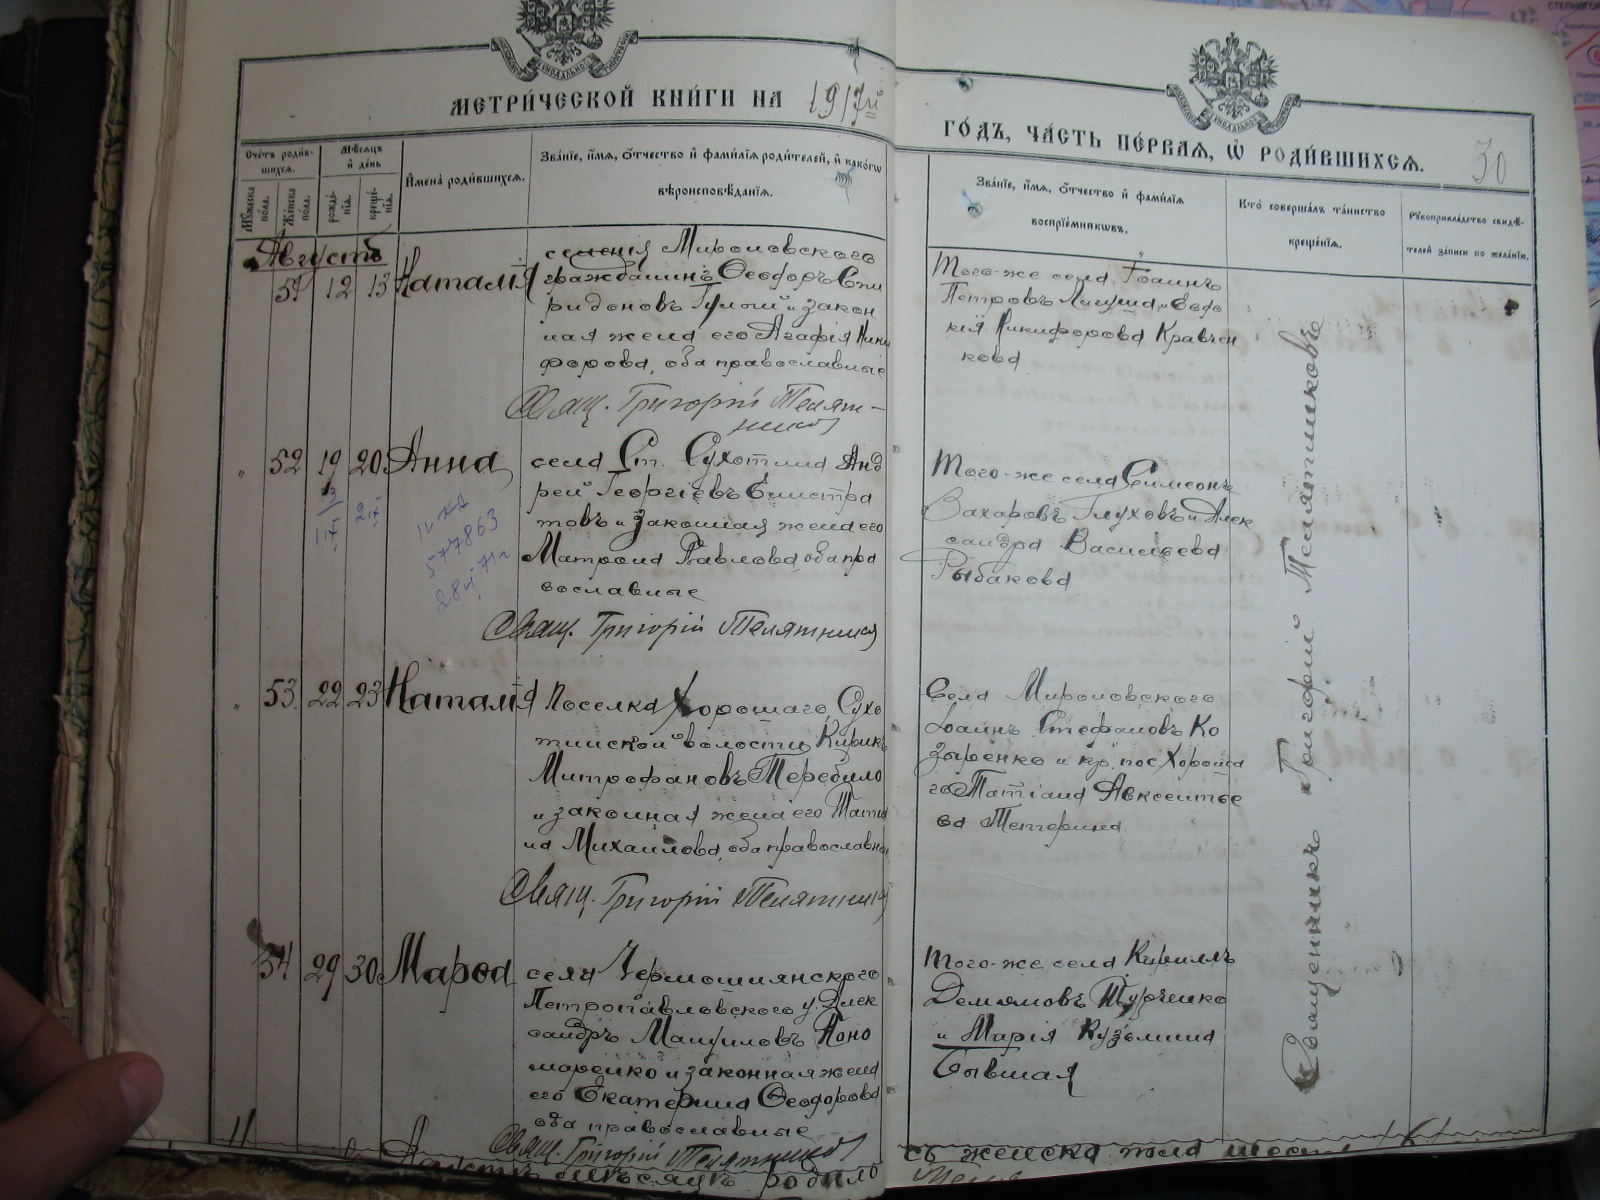 МЕТРИ́ЧЕСКОЙ КНИ́ГИ НА 1917й
ГО́ДЪ, ЧА́СТЬ ПЕ́РВАЯ, Ѡ РОДИ́ВШИХСЯ.
30
Сче́тъ роди́в-
шихся.
Мѣ́сяцъ
и̂ де́нь
Мꙋ́жеска
по́ла.
Же́нска
по́ла.
рожде́-
нїя.
креще́-
нїя.
И̂мена̀ роди́вшихся.
Зва́нїе, и̂́мя, о̂́тчество и̂ фами́лїя роди́телей, и̂ како́гѡ
вѣроисповѣ́данїя.
Зва́нїе, и̂́мя, о̂́тчество и̂ фами́лїя
воспрїе́мникѡвъ.
Кто̀ соверша́лъ та́инство
креще́нїя.
Рꙋкоприкла́дство свидѣ́-
телей за́писи по жела́нїю.
Августъ
51 12 13 Наталія
селенія Мироновского
гражданинъ Ѳеодоръ Спи
ридоновъ и закон
ная жена его Агафія Ники
форова, оба православные
Свящ. Григорій Телят-
никовъ
Того-же села Іоаннъ
Петровъ и Евдо
кія Никифорова Кравчен
кова
52 19 20 Анна
села Ст. Сухотина Анд
рей Георгіевъ Елистра
товъ и законная жена его
Матрона Павлова, оба пра
вославные
Свящ. Григорій Телятников
577863
Того-же села Симеонъ
Захаровъ Глуховъ и Алек
сандра Васильева
Рыбакова
53 22 23 Наталія
Поселка Хорошаго, Сухо
тинской волости Кирикъ
Митрофановъ Теребило
и законная жена его Татіа
на Михаилова, оба православные
Свящ. Григорій Телятников
Села Мироновского
Іоаннъ Стефановъ Ко
зыренко и кр. пос. Хороша
го Татіана Авксентье
ва Тетерина
54 29 30 Марѳа
села
Петропавловского у. Алек
сандръ Поно
маренко и законная жена
его Екатерина Ѳеодорова
оба православные
Свящ. Григорій Телятников
Того-же села Кириллъ
Демяновъ Турченко
и Марія Кузьмина
Бывшая
Священникъ Григорій Телятниковъ
мѣсяцъ родило
съ женска пола